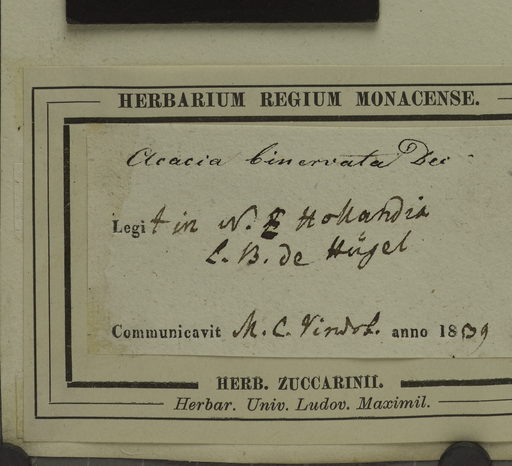 HERBARIUM REGIUM MONACENSE.
Acacia binervata Dec
Legit in N. Hollandia
L. B. de Hügel
Communicavit M. C. Vindob. anno 1839
HERB. ZUCCARINII.
Herbar. Univ. Ludov. Maximil.